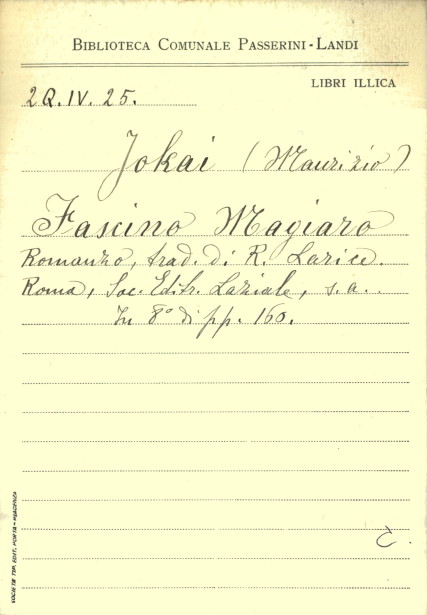 BIBLIOTECA COMUNALE PASSERINI-LANDI
LIBRI ILLICA
2Q.IV.25.
Jokai (Maurizio)
Fascino Magiaro
Romanzo, trad. di R. Larice.
Roma, Soc. Editr. Laziale, s.a..
In 8° di pp. 160.
C.